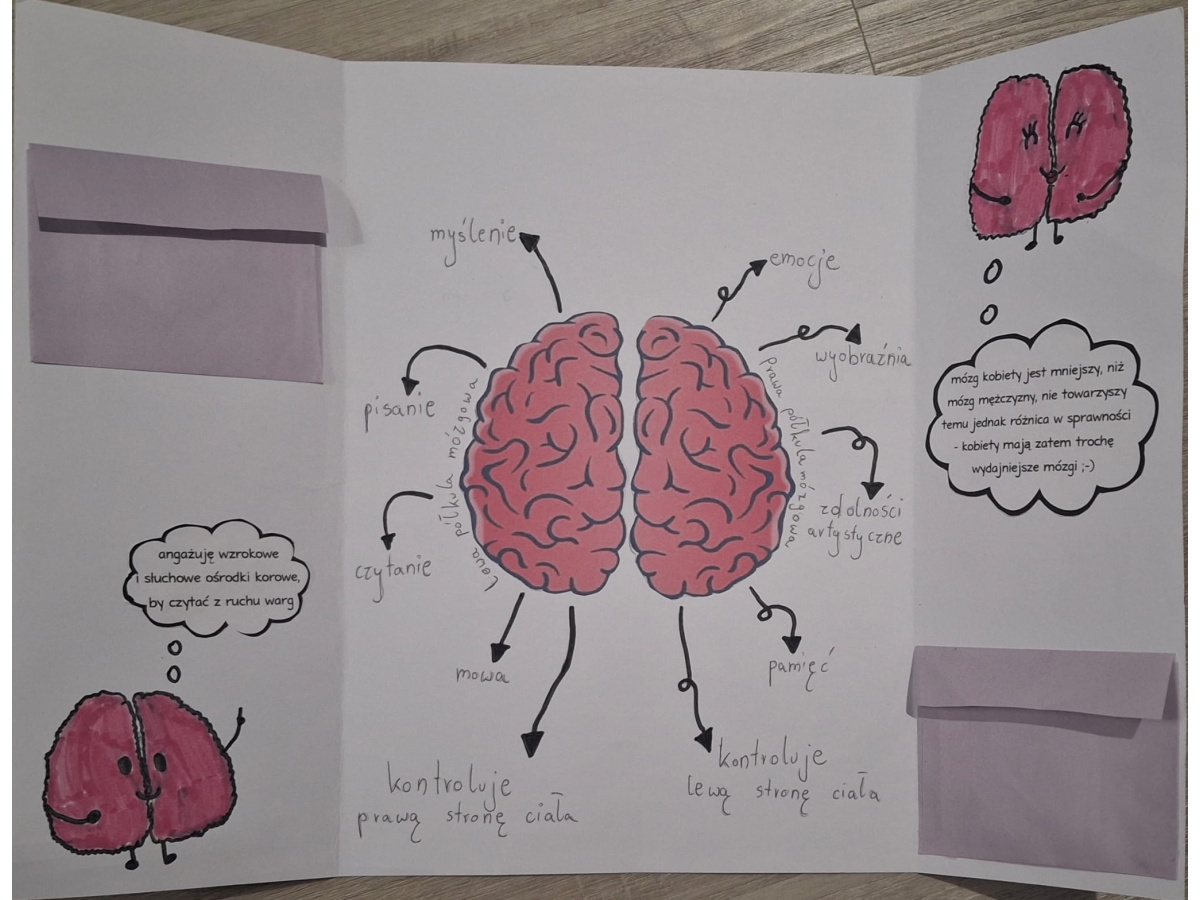 myślenie
pisanie
czytanie
mowa
kontroluje
prawą stronę ciała
Lewa półkula mózgowa
prawa półkula mózgowa
emocje
wyobraźnia
zdolności
artystyczne
pamięć
kontroluje
lewą stronę ciała
angażuję wzrokowe
i słuchowe ośrodki korowe,
by czytać z ruchu warg
mózg kobiety jest mniejszy, niż
mózg mężczyzny, nie towarzyszy
temu jednak różnica w sprawności
- kobiety mają zatem trochę
wydajniejsze mózgi ;-)